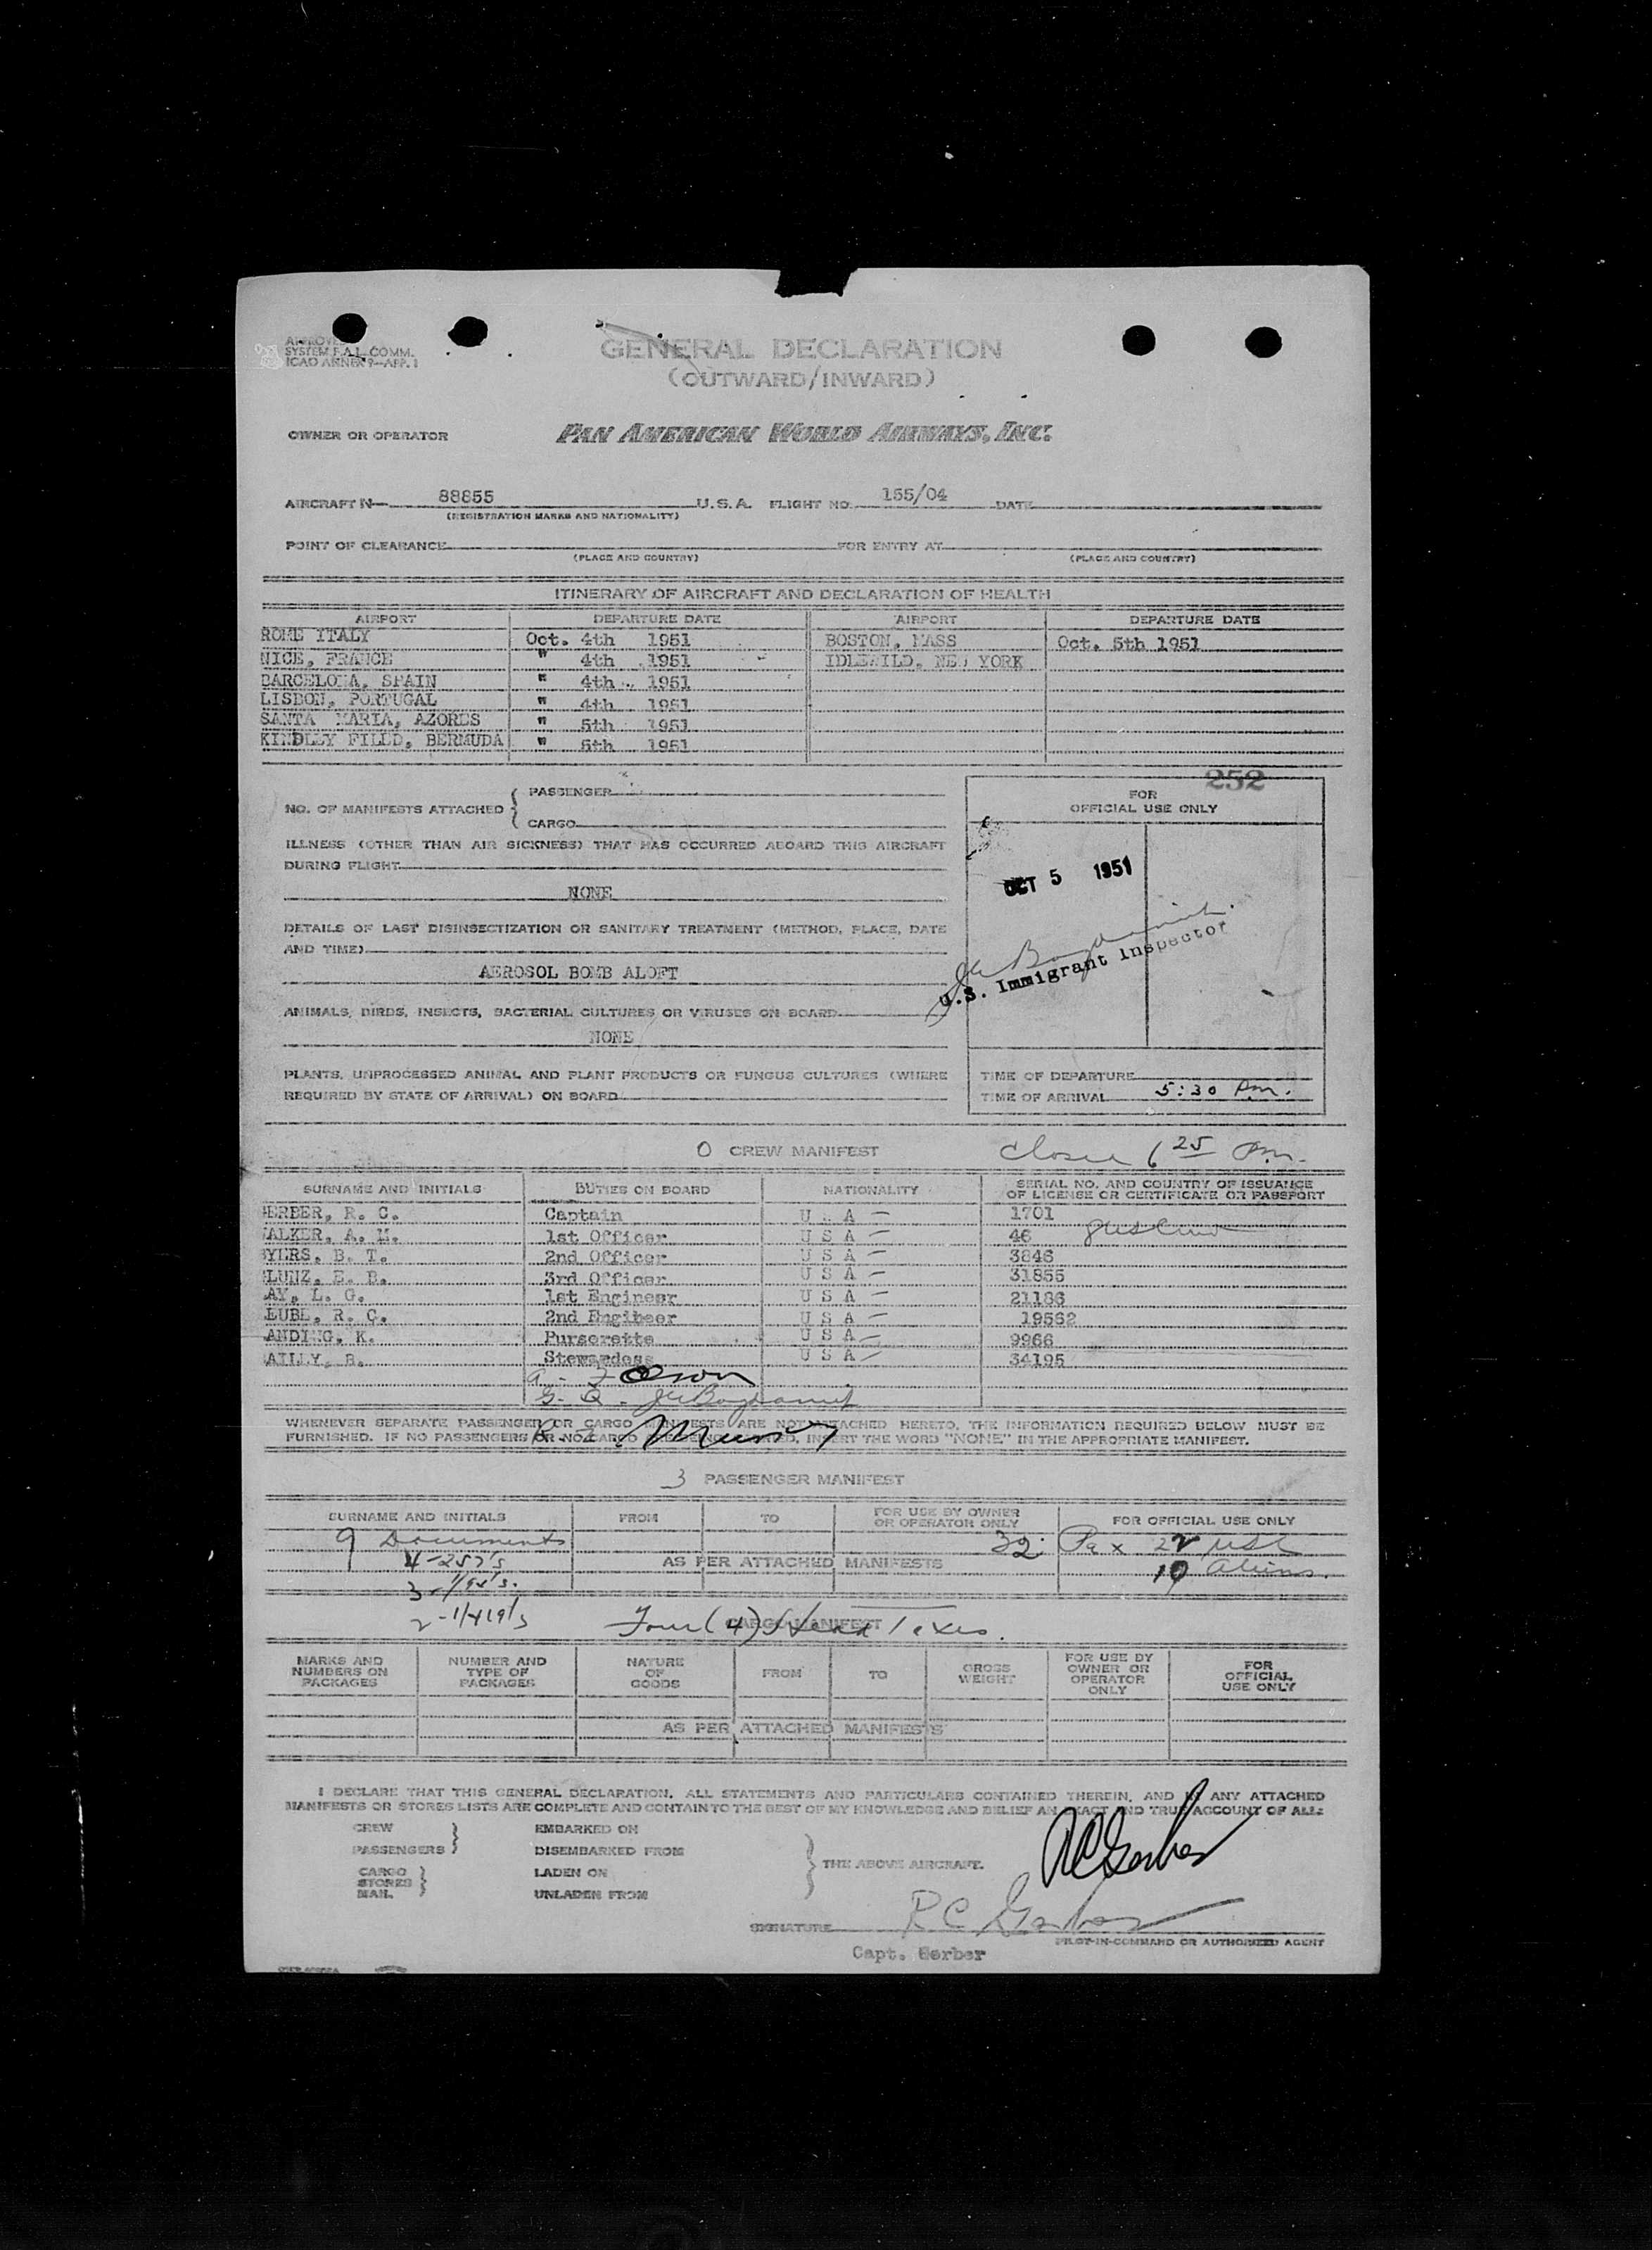 APPROVED
SYSTEM F.A.L. COMM.
ICAO ANNEX 9—APP. 1
GENERAL DECLARATION
(OUTWARD/INWARD)
OWNER OR OPERATOR PAN AMERICAN WORLD AIRWAYS, INC.
AIRCRAFT N— 88855 U.S.A. FLIGHT NO. 155/04 DATE
(REGISTRATION MARKS AND NATIONALITY)
POINT OF CLEARANCE FOR ENTRY AT
(PLACE AND COUNTRY) (PLACE AND COUNTRY)
ITINERARY OF AIRCRAFT AND DECLARATION OF HEALTH
AIRPORT DEPARTURE DATE AIRPORT DEPARTURE DATE
ROME ITALY Oct. 4th 1951 BOSTON, MASS Oct. 5th 1951
NICE, FRANCE " 4th 1951 IDLEWILD, NEW YORK
BARCELONA, SPAIN " 4th 1951
LISBON, PORTUGAL " 4th 1951
SANTA MARIA, AZORES " 5th 1951
KINDLEY FIELD, BERMUDA " 5th 1951
252
NO. OF MANIFESTS ATTACHED { PASSENGER
CARGO
FOR
OFFICIAL USE ONLY
ILLNESS (OTHER THAN AIR SICKNESS) THAT HAS OCCURRED ABOARD THIS AIRCRAFT
DURING FLIGHT
NONE
OCT 5 1951
DETAILS OF LAST DISINSECTIZATION OR SANITARY TREATMENT (METHOD, PLACE, DATE
AND TIME)
AEROSOL BOMB ALOFT
U.S. Immigrant Inspector
ANIMALS, BIRDS, INSECTS, BACTERIAL CULTURES OR VIRUSES ON BOARD
NONE
PLANTS, UNPROCESSED ANIMAL AND PLANT PRODUCTS OR FUNGUS CULTURES (WHERE
REQUIRED BY STATE OF ARRIVAL) ON BOARD
TIME OF DEPARTURE
TIME OF ARRIVAL 5:30 Pm.
0 CREW MANIFEST Close 6 25 Pm.
SURNAME AND INITIALS DUTIES ON BOARD NATIONALITY SERIAL NO. AND COUNTRY OF ISSUANCE
OF LICENSE OR CERTIFICATE OR PASSPORT
ERBER, R. C. Captain U S A — 1701
ALKER, A. M. 1st Officer U S A — 46
YERS, B. T. 2nd Officer U S A — 3846
LUNZ, E. B. 3rd Officer U S A — 31855
AY, L. G. 1st Engineer U S A — 21186
EUBE, R. C. 2nd Engibeer U S A — 19562
ANDING, K. Purserette U S A — 9966
AILLY, B. Stewardess U S A — 34195
WHENEVER SEPARATE PASSENGER OR CARGO MANIFESTS ARE NOT ATTACHED HERETO, THE INFORMATION REQUIRED BELOW MUST BE
FURNISHED. IF NO PASSENGERS OR NO CARGO INSERT THE WORD "NONE" IN THE APPROPRIATE MANIFEST.
3 PASSENGER MANIFEST
SURNAME AND INITIALS FROM TO FOR USE BY OWNER
OR OPERATOR ONLY FOR OFFICIAL USE ONLY
9 Documents 32 Pax 22 USC
4-257's AS PER ATTACHED MANIFESTS 10 Aliens.
Four (4) Head Taxes.
CARGO MANIFEST
MARKS AND
NUMBERS ON
PACKAGES
NUMBER AND
TYPE OF
PACKAGES
NATURE
OF
GOODS
FROM
TO
GROSS
WEIGHT
FOR USE BY
OWNER OR
OPERATOR
ONLY
FOR
OFFICIAL
USE ONLY
AS PER ATTACHED MANIFESTS
I DECLARE THAT THIS GENERAL DECLARATION, ALL STATEMENTS AND PARTICULARS CONTAINED THEREIN, AND IN ANY ATTACHED
MANIFESTS OR STORES LISTS ARE COMPLETE AND CONTAIN TO THE BEST OF MY KNOWLEDGE AND BELIEF AN EXACT AND TRUE ACCOUNT OF ALL:
CREW EMBARKED ON
PASSENGERS DISEMBARKED FROM
CARGO LADEN ON
STORES
MAIL UNLADEN FROM
THE ABOVE AIRCRAFT.
RCGerber
SIGNATURE R C Gerber
PILOT-IN-COMMAND OR AUTHORIZED AGENT
Capt. Gerber